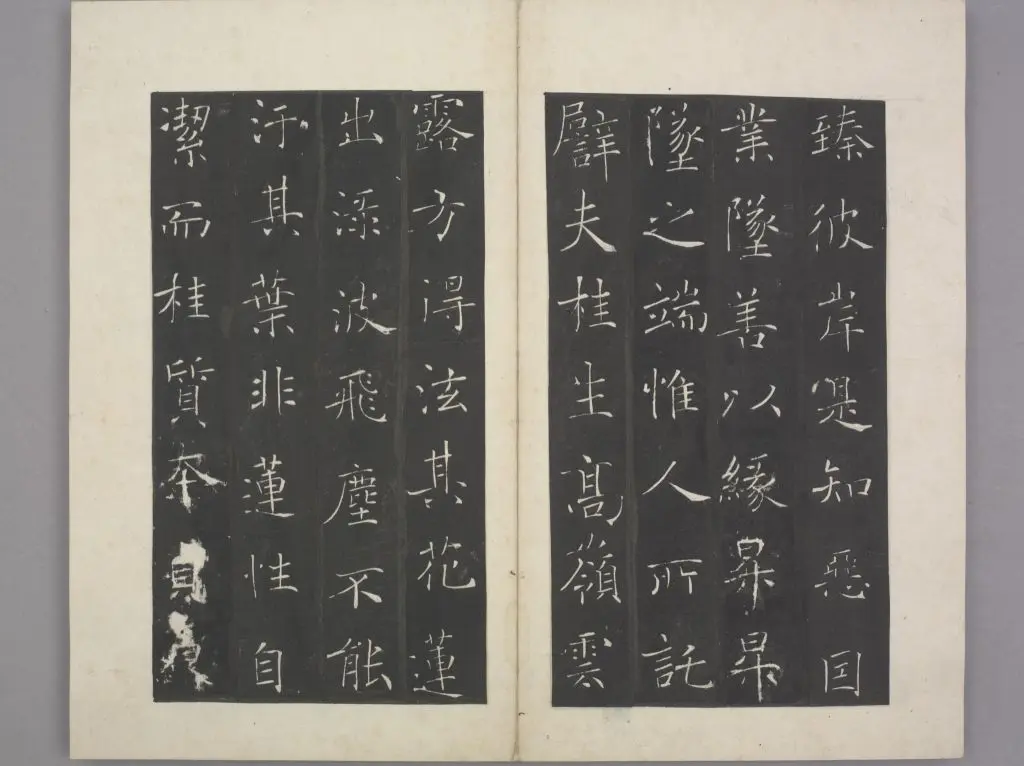 臻彼岸是知惡囙
業墜善以緣昇昇
墜之端惟人所託
譬夫桂生髙嶺雲
露方得泫其花蓮
出淥波飛塵不能
汙其葉非蓮性自
潔而桂質本貞良